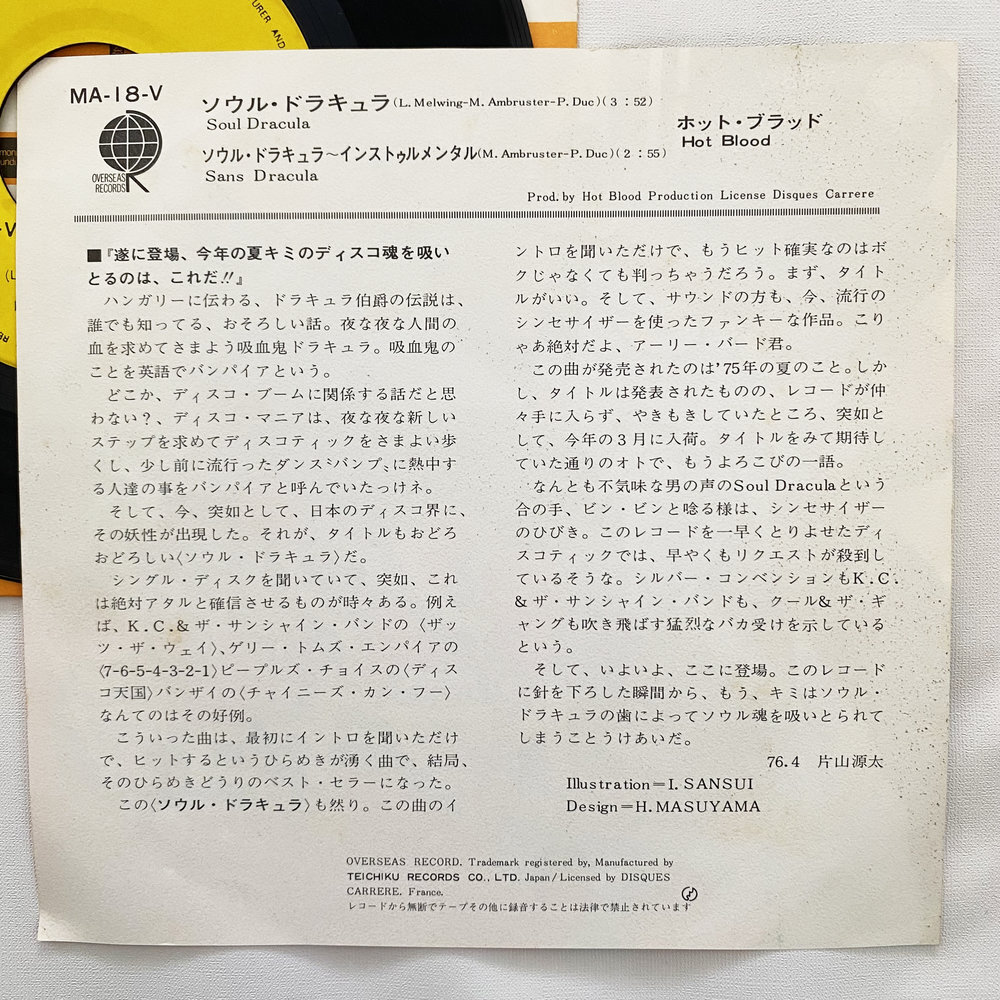 URER AND
MA-18-V
OVERSEAS
RECORDS
ソウル・ドラキュラ(L. Melwing-M. Ambruster-P. Duc)(3:52)
Soul Dracula
ソウル・ドラキュラ〜インストゥルメンタル(M. Ambruster-P. Duc)(2:55)
Sans Dracula
ホット・ブラッド
Hot Blood
Prod. by Hot Blood Production License Disques Carrere
■『遂に登場、今年の夏キミのディスコ魂を吸い
とるのは、これだ!!』
ハンガリーに伝わる、ドラキュラ伯爵の伝説は、
誰でも知ってる、おそろしい話。夜な夜な人間の
血を求めてさまよう吸血鬼ドラキュラ。吸血鬼の
ことを英語でバンパイアという。
どこか、ディスコ・ブームに関係する話だと思
わない?、ディスコ・マニアは、夜な夜な新しい
ステップを求めてディスコティックをさまよい歩
くし、少し前に流行ったダンス〝バンプ〟に熱中す
る人達の事をバンパイアと呼んでいたっけネ。
そして、今、突如として、日本のディスコ界に、
その妖性が出現した。それが、タイトルもおどろ
おどろしい〈ソウル・ドラキュラ〉だ。
シングル・ディスクを聞いていて、突如、これ
は絶対アタルと確信させるものが時々ある。例え
ば、K.C.&ザ・サンシャイン・バンドの〈ザッ
ツ・ザ・ウェイ〉、ゲリー・トムズ・エンパイアの
〈7-6-5-4-3-2-1〉ピープルズ・チョイスの〈ディス
コ天国〉バンザイの〈チャイニーズ・カン・フー〉
なんてのはその好例。
こういった曲は、最初にイントロを聞いただけ
で、ヒットするというひらめきが湧く曲で、結局、
そのひらめきどうりのベスト・セラーになった。
この〈ソウル・ドラキュラ〉も然り。この曲のイ
ントロを聞いただけで、もうヒット確実なのはボ
クじゃなくても判っちゃうだろう。まず、タイト
ルがいい。そして、サウンドの方も、今、流行の
シンセサイザーを使ったファンキーな作品。こり
ゃあ絶対だよ、アーリー・バード君。
この曲が発売されたのは'75年の夏のこと。しか
し、タイトルは発表されたものの、レコードが仲
々手に入らず、やきもきしていたところ、突如と
して、今年の3月に入荷。タイトルをみて期待し
ていた通りのオトで、もうよろこびの一語。
なんとも不気味な男の声のSoul Draculaという
合の手、ビン・ビンと唸る様は、シンセサイザー
のひびき。このレコードを一早くとりよせたディ
スコティックでは、早やくもリクエストが殺到し
ているそうな。シルバー・コンベンションもK.C.
&ザ・サンシャイン・バンドも、クール&ザ・ギ
ャングも吹き飛ばす猛烈なバカ受けを示している
という。
そして、いよいよ、ここに登場。このレコード
に針を下ろした瞬間から、もう、キミはソウル・
ドラキュラの歯によってソウル魂を吸いとられて
しまうことうけあいだ。
76.4 片山源太
Illustration=I. SANSUI
Design=H. MASUYAMA
OVERSEAS RECORD. Trademark registered by, Manufactured by
TEICHIKU RECORDS CO., LTD. Japan/Licensed by DISQUES
CARRERE. France.
レコードから無断でテープその他に録音することは法律で禁止されています